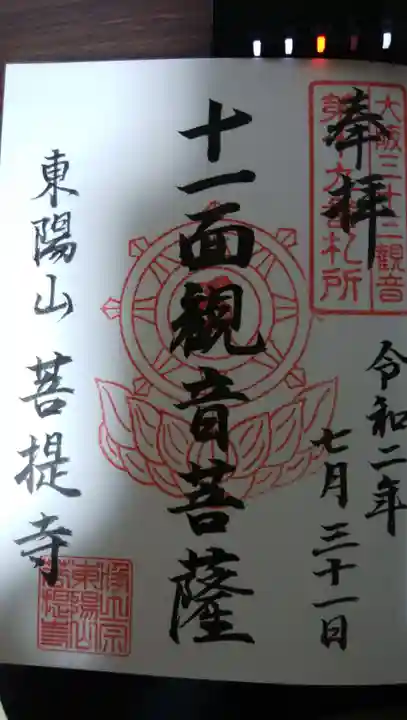 大阪三十三観音
奉拝
令和二年
七月三十一日
十一面観音菩薩
東陽山 菩提寺
東陽山
菩提寺